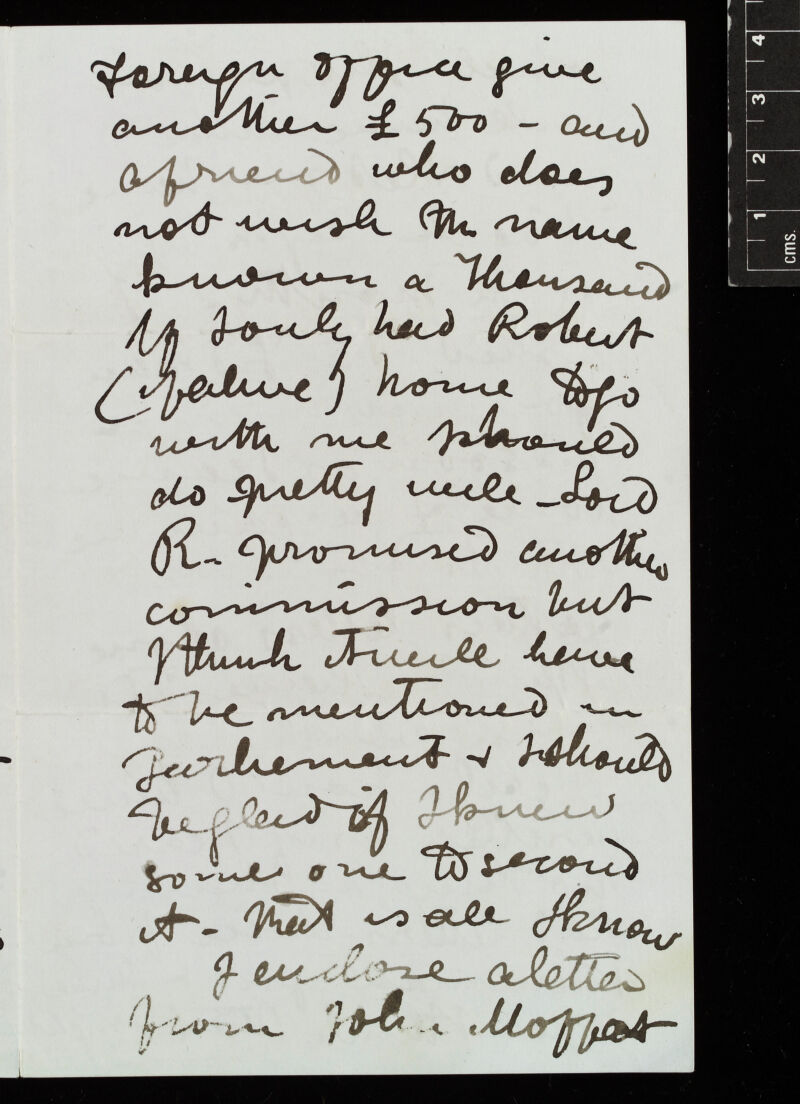 Foreign Office give
another £500 - and
a friend who does
not wish the name
known a thousand
If I only had Robert
(if alive) home to go
with me I should
do pretty well - Lord
R - promised another
commission but
I think it will have
to be mentioned in
Parliament & I should
be glad if I knew
some one to second
it - That is all I know
I enclose a letter
from John Moffat
4
3
2
1
cms.